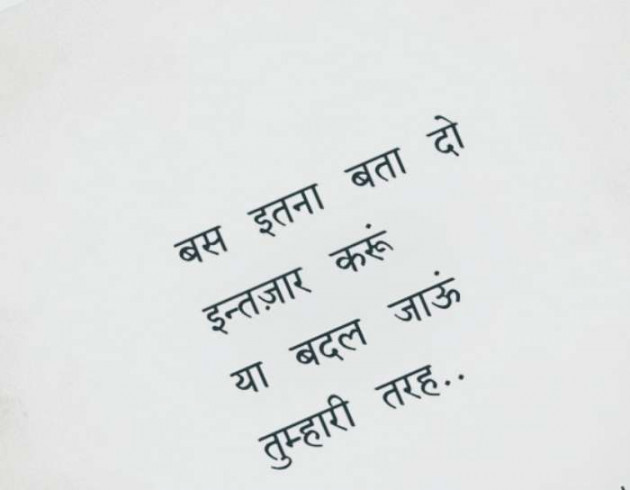 बस इतना बता दो
इन्तज़ार करूं
या बदल जाऊं
तुम्हारी तरह..